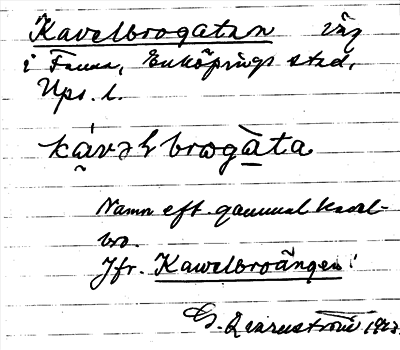 Kavelbrogatan väg
i Fanna, Enköpings stad,
Ups. l.
kávəlbrogàta
Namn eft. gammal kavel-
bro.
Jfr. Kavelbroängen!
G. Qvarnström 19